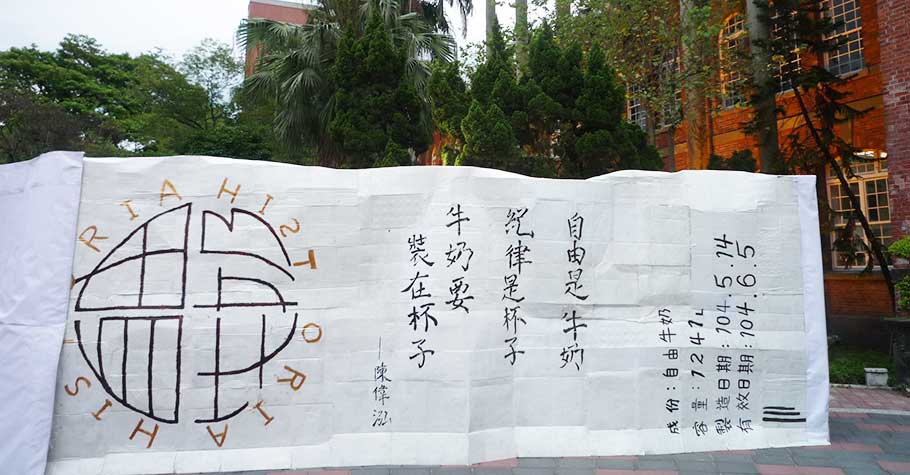 HISTORIA
HISTORIA
自由是牛奶
紀律是杯子
牛奶要
裝在杯子
—陳偉泓
成份:自由牛奶
容量:1247L
製造日期:104.5.14
有效日期:104.6.5